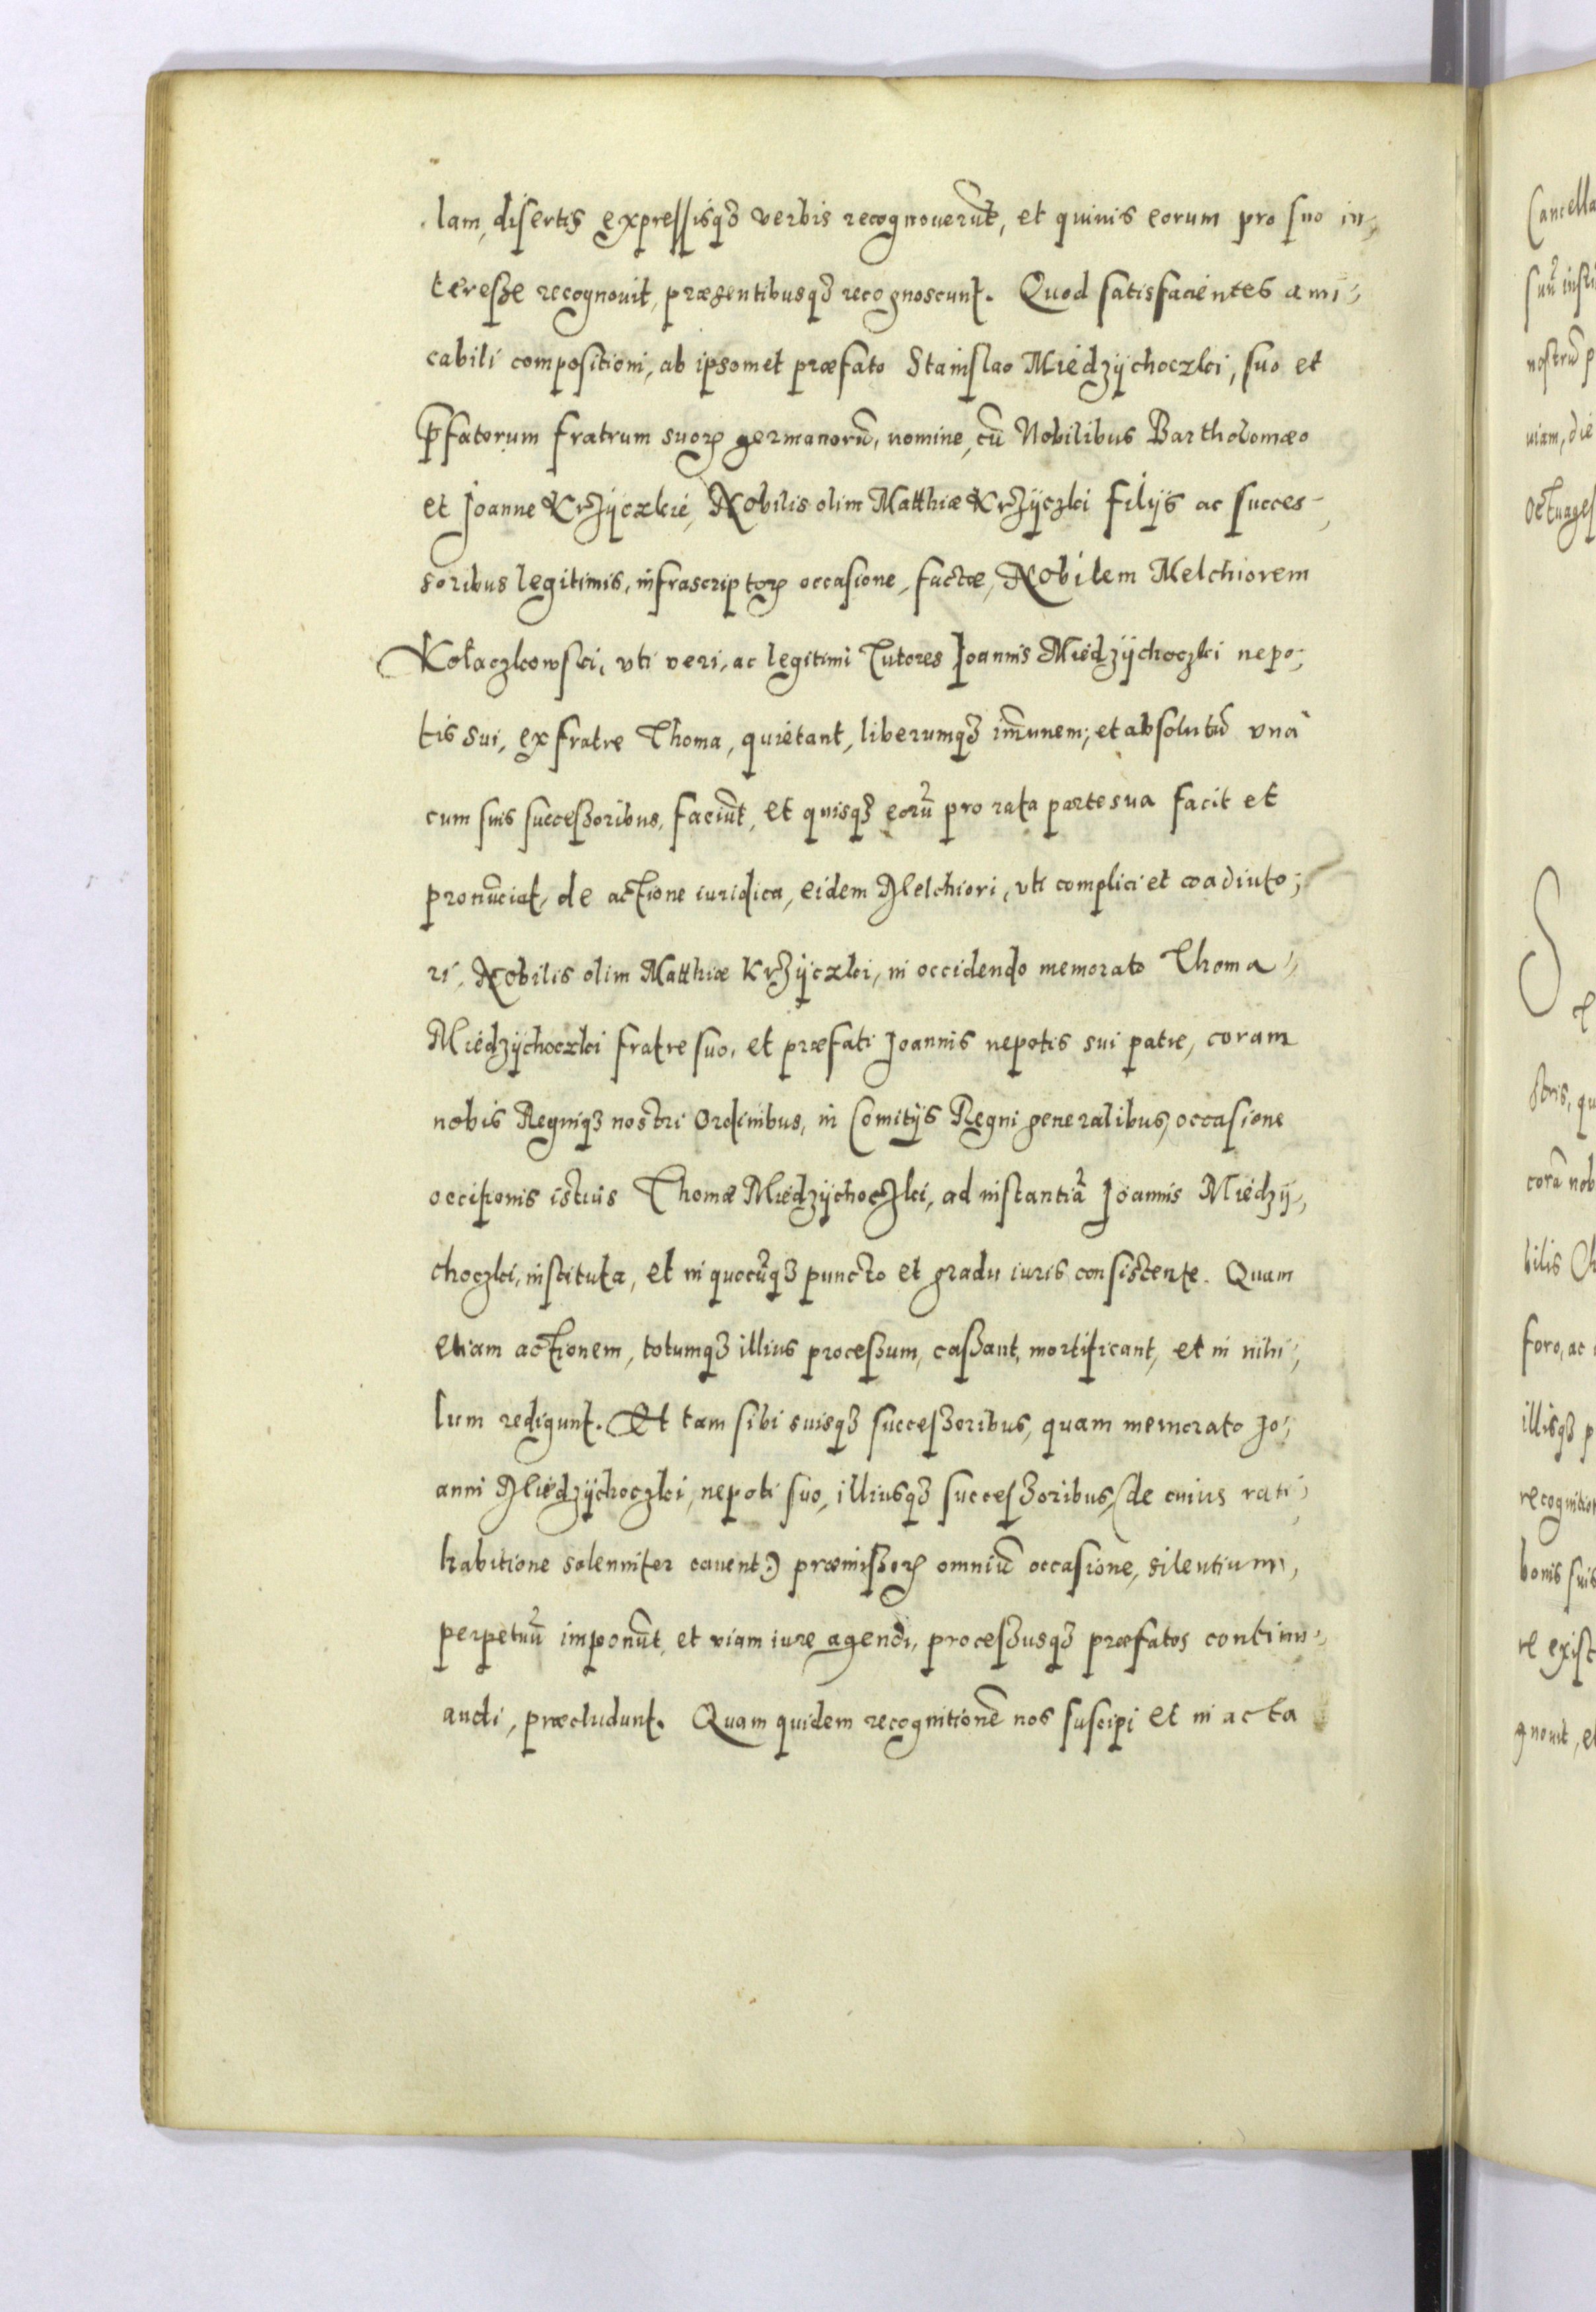 lam, disertis expressisqꝫ verbis recognoverūt, et quivis eorum pro suo in-
teresse recognovit, præsentibusqꝫ recognoscunt. Quod satisfacientes ami-
cabili compositioni, ab ipsomet præfato Stanislao Miedzÿchoczki, suo et
p̄fatorum fratrum suoꝝ germanorū, nomine, cū Nobilibus Bartholomæo
et Joanne Krzÿczkie, Nobilis olim Matthiæ Krzÿczki filÿs ac succes-
soribus legitimis, infrascriptoꝝ occasione, factæ, Nobilem Melchiorem
Kołaczkowski, vti veri, ac legitimi Tutores Joannis Miedzÿchoczki nepo-
tis sui, ex fratre Thoma, quietant, liberumqꝫ im̄unem, et absolutū vnà
cum suis successoribus, faciūt, et quisqꝫ eorū pro rata parte sua facit et
pronūciat, de actione iuridica, eidem Melchiori, vti complici et coadiuto-
ri, Nobilis olim Matthiæ Krzÿczki, in occidendo memorato Thoma
Miedzÿchoczki fratre suo, et præfati Joannis nepotis sui patre, coram
nobis Regniqꝫ nostri Ordinibus, in Comitÿs Regni generalibus, occasione
occisionis istius Thomæ Miedzÿchoczki, ad instantiā Joannis Miedzÿ-
choczki, instituta, et in quocūqꝫ puncto et gradu iuris consistente. Quam
etiam actionem, totumqꝫ illius processum, cassant, mortificant, et in nihi-
lum redigunt. Et tam sibi suisqꝫ successoribus, quam memorato Jo-
anni Miedzÿchoczki, nepoti suo, illiusqꝫ successoribus, (de cuius rati-
habitione solenniter cavent.) præmissoꝝ omniū occasione, silentium,
perpetuū imponūt, et viam iure agendi, processusqꝫ præfatos continu-
andi, præcludunt. Quam quidem recognitionē nos suscipi et in acta
Cancella
suū insti
nostrū p
viam, die
octuages
S
foro, ac
illisqꝫ p
recognition
bonis suis
re exist
gnovit, et